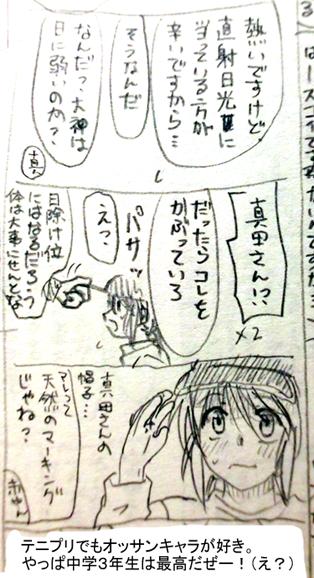 熱いですけど
直射日光に
当っている方が
辛いですから…
そうなんだ
なんだ?大神は
日に弱いのか?
真
真田さん!?
×2
だったらコレを
かぶっていろ
パサッ
えっ?
日除け位
にはなるだろう?
体は大事にせんとな
真田さんの
帽子…
そしって
天然のマーキング
じゃね?
赤也
テニプリでもオッサンキャラが好き。
やっぱ中学3年生は最高だぜー!(え?)